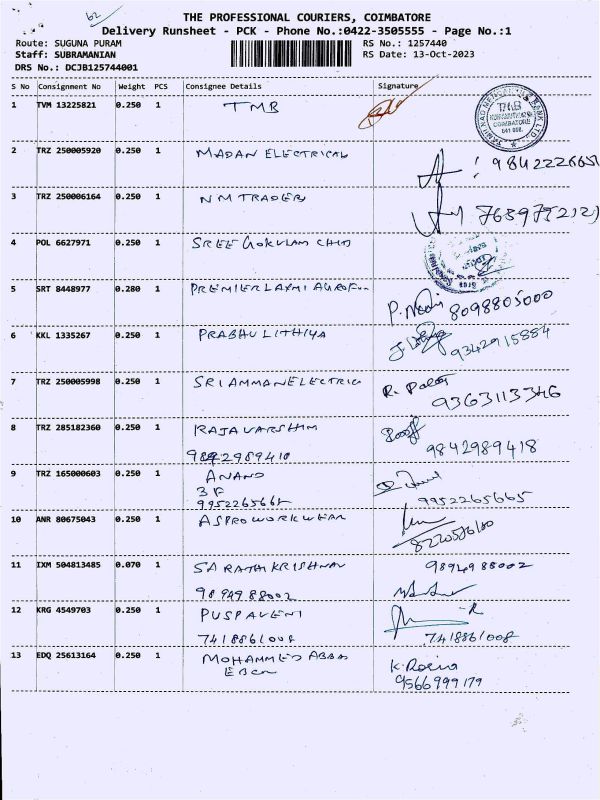 62
THE PROFESSIONAL COURIERS, COIMBATORE
Delivery Runsheet - PCK - Phone No.:0422-3505555 - Page No.:1
Route: SUGUNA PURAM RS No.: 1257440
Staff: SUBRAMANIAN RS Date: 13-Oct-2023
DRS No.: DCJB125744001
S No Consignment No Weight PCS Consignee Details Signature
1 TVM 13225821 0.250 1 TMB
TMB
COIMBATORE
2 TRZ 250005920 0.250 1 MADAN ELECTRICAL
3 TRZ 250006164 0.250 1 NM TRADERS
4 POL 6627971 0.250 1 SREE GOKULAM CHIT
5 SRT 8448977 0.280 1 PREMIER LAXMI
8098805000
6 KKL 1335267 0.250 1 PRABHU LITHIYA
9342915884
7 TRZ 250005998 0.250 1 SRI AMMAN ELECTRIC
9363113346
8 TRZ 285182360 0.250 1 RAJAVARSHIM
9842989418
9 TRZ 165000603 0.250 1 ANAND
3F
9952265665
10 ANR 80675043 0.250 1 ASPRO WORKWEAR
11 IXM 504813485 0.070 1 SARATHI KRISHNAN 9894988002
9894988002
12 KRG 4549703 0.250 1 PUSPAVENI
7418861008 7418861008
13 EDQ 25613164 0.250 1 MOHAMMED ABBAS
K. Rosina
9566999179